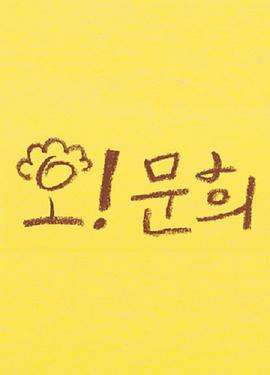 오! 문희